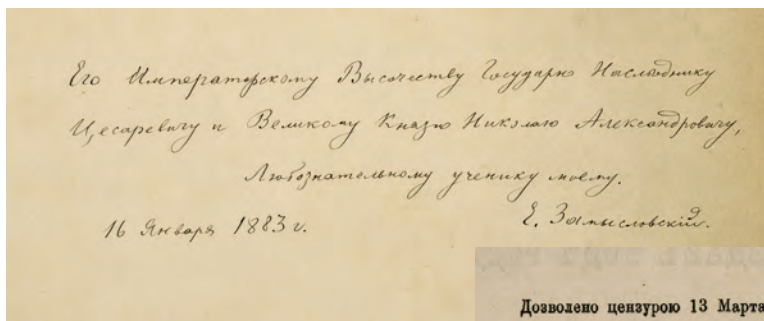 Его Императорскому Высочеству Государю Наследнику
Цесаревичу и Великому Князю Николаю Александровичу,
Любознательному ученику моему.
16 Января 1883 г.
Е. Замысловскій.
Дозволено цензурою 13 Марта